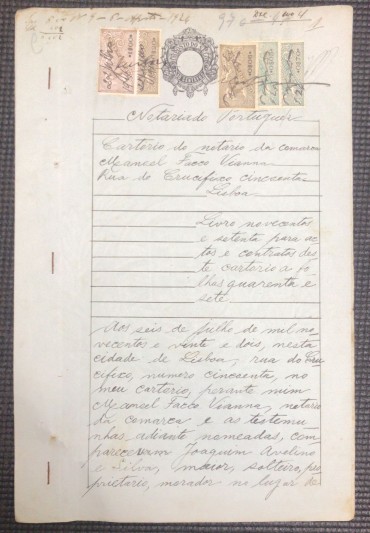 Notariado Portuguez
Cartorio do notario da comarca
Manoel Facco Vianna
Rua do Crucifixo, cincoenta
Lisboa
Livro novecentos
e setenta para ac-
tos e contratos des-
te cartorio a fo-
lhas quarenta e
sete
Aos seis de Julho de mil no-
vecentos e vinte e dois, nesta
cidade de Lisboa, rua do Cru-
cifixo, numero cincoenta, no
meu cartorio, perante mim
Manoel Facco Vianna, notario
da comarca e as testemu-
nhas adiante nomeadas, com-
pareceram Joaquim Avelino
e Silva, maior, solteiro, pro-
prietario, morador no lugar de